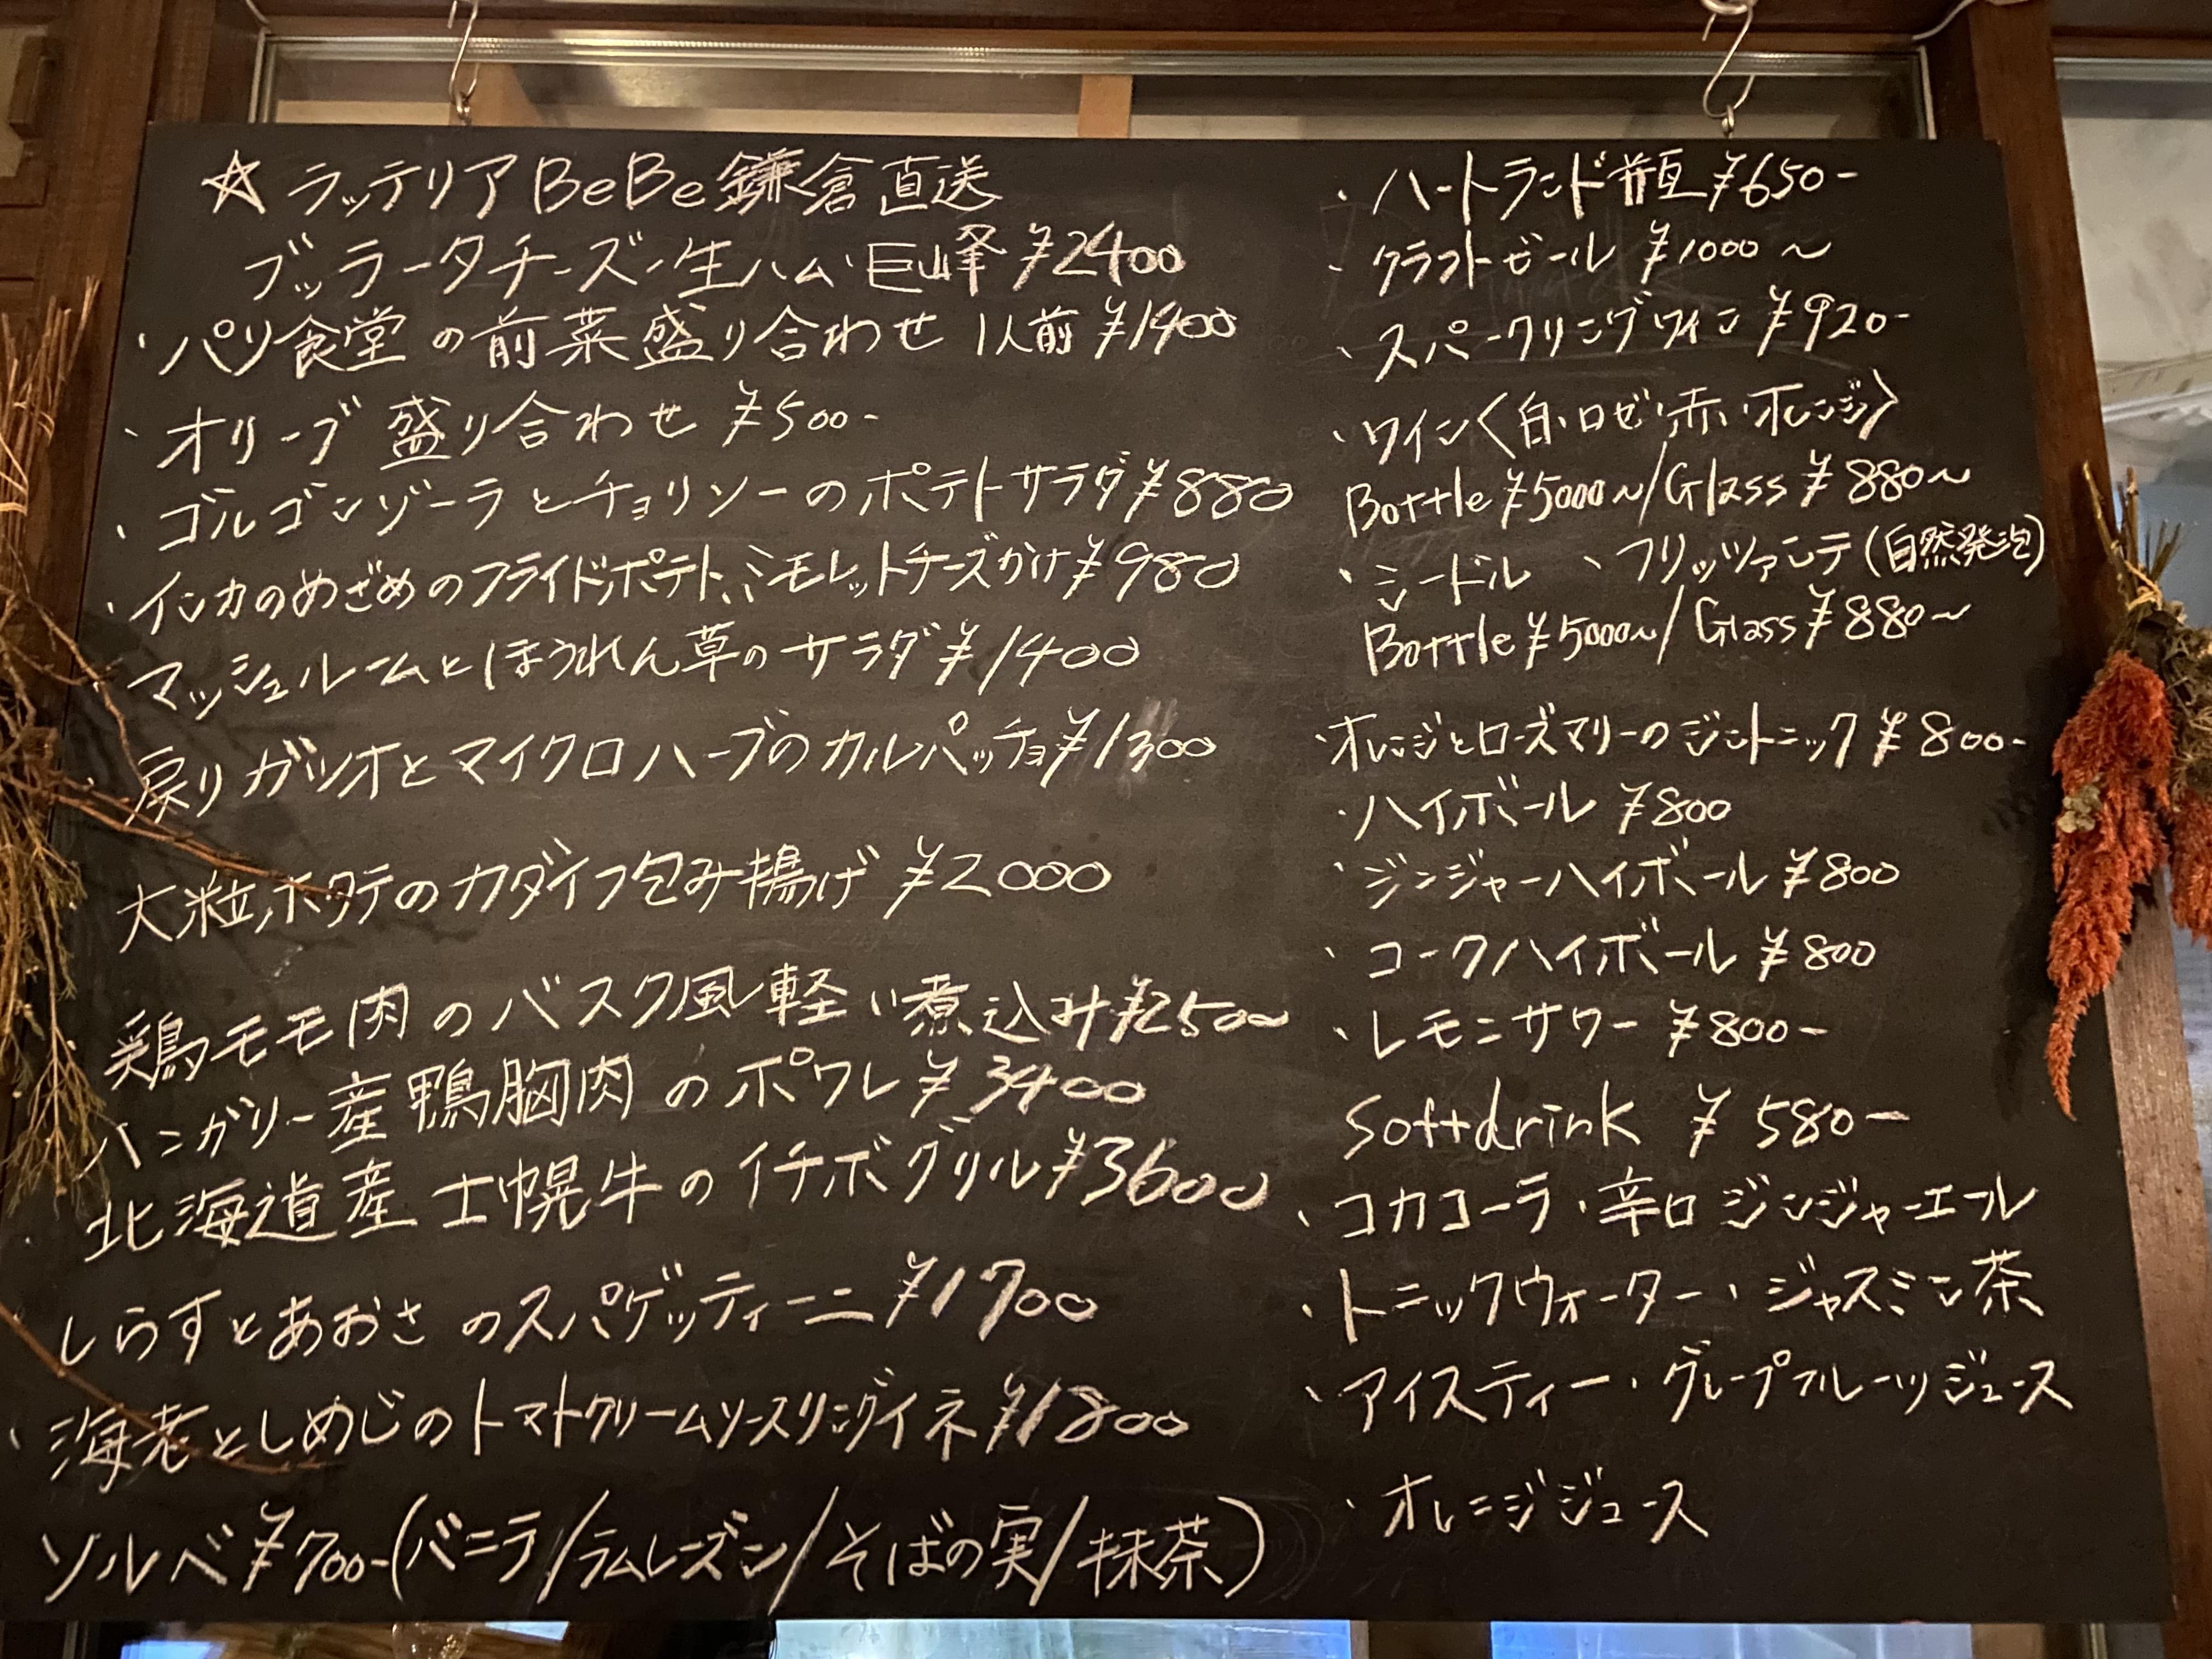 ☆ ラッテリア BeBe 鎌倉直送
ブッラータチーズ・生ハム・巨峰 ¥2400
・パリ食堂の前菜盛り合わせ 1人前 ¥1400
・オリーブ盛り合わせ ¥500-
・ゴルゴンゾーラとチョリソーのポテトサラダ ¥880
・インカのめざめのフライドポテト、ミモレットチーズかけ ¥980
・マッシュルームとほうれん草のサラダ ¥1400
・戻りガツオとマイクロハーブのカルパッチョ ¥1300
大粒ホタテのカダイフ包み揚げ ¥2000
鶏モモ肉のバスク風軽い煮込み ¥2500
ハンガリー産鴨胸肉のポワレ ¥3400
・北海道産 士幌牛のイチボグリル ¥3600
・しらすとあおさのスパゲッティーニ ¥1700
・海老としめじのトマトクリームソースリングイネ ¥1800
ソルベ ¥700-(バニラ/ラムレーズン/そばの実/抹茶)
・ハートランド 瓶 ¥650-
・クラフトビール ¥1000〜
・スパークリングワイン ¥920-
・ワイン〈白・ロゼ・赤・オレンジ〉
Bottle ¥5000〜/Glass ¥880〜
・シードル 、フリッツァンテ(自然発泡)
Bottle ¥5000〜/Glass ¥880〜
・オレンジとローズマリーのジントニック ¥800-
・ハイボール ¥800
・ジンジャーハイボール ¥800
・コークハイボール ¥800
・レモンサワー ¥800-
Softdrink ¥580-
・コカコーラ・辛口ジンジャーエール
・トニックウォーター・ジャスミン茶
・アイスティー・グレープフルーツジュース
・オレンジジュース